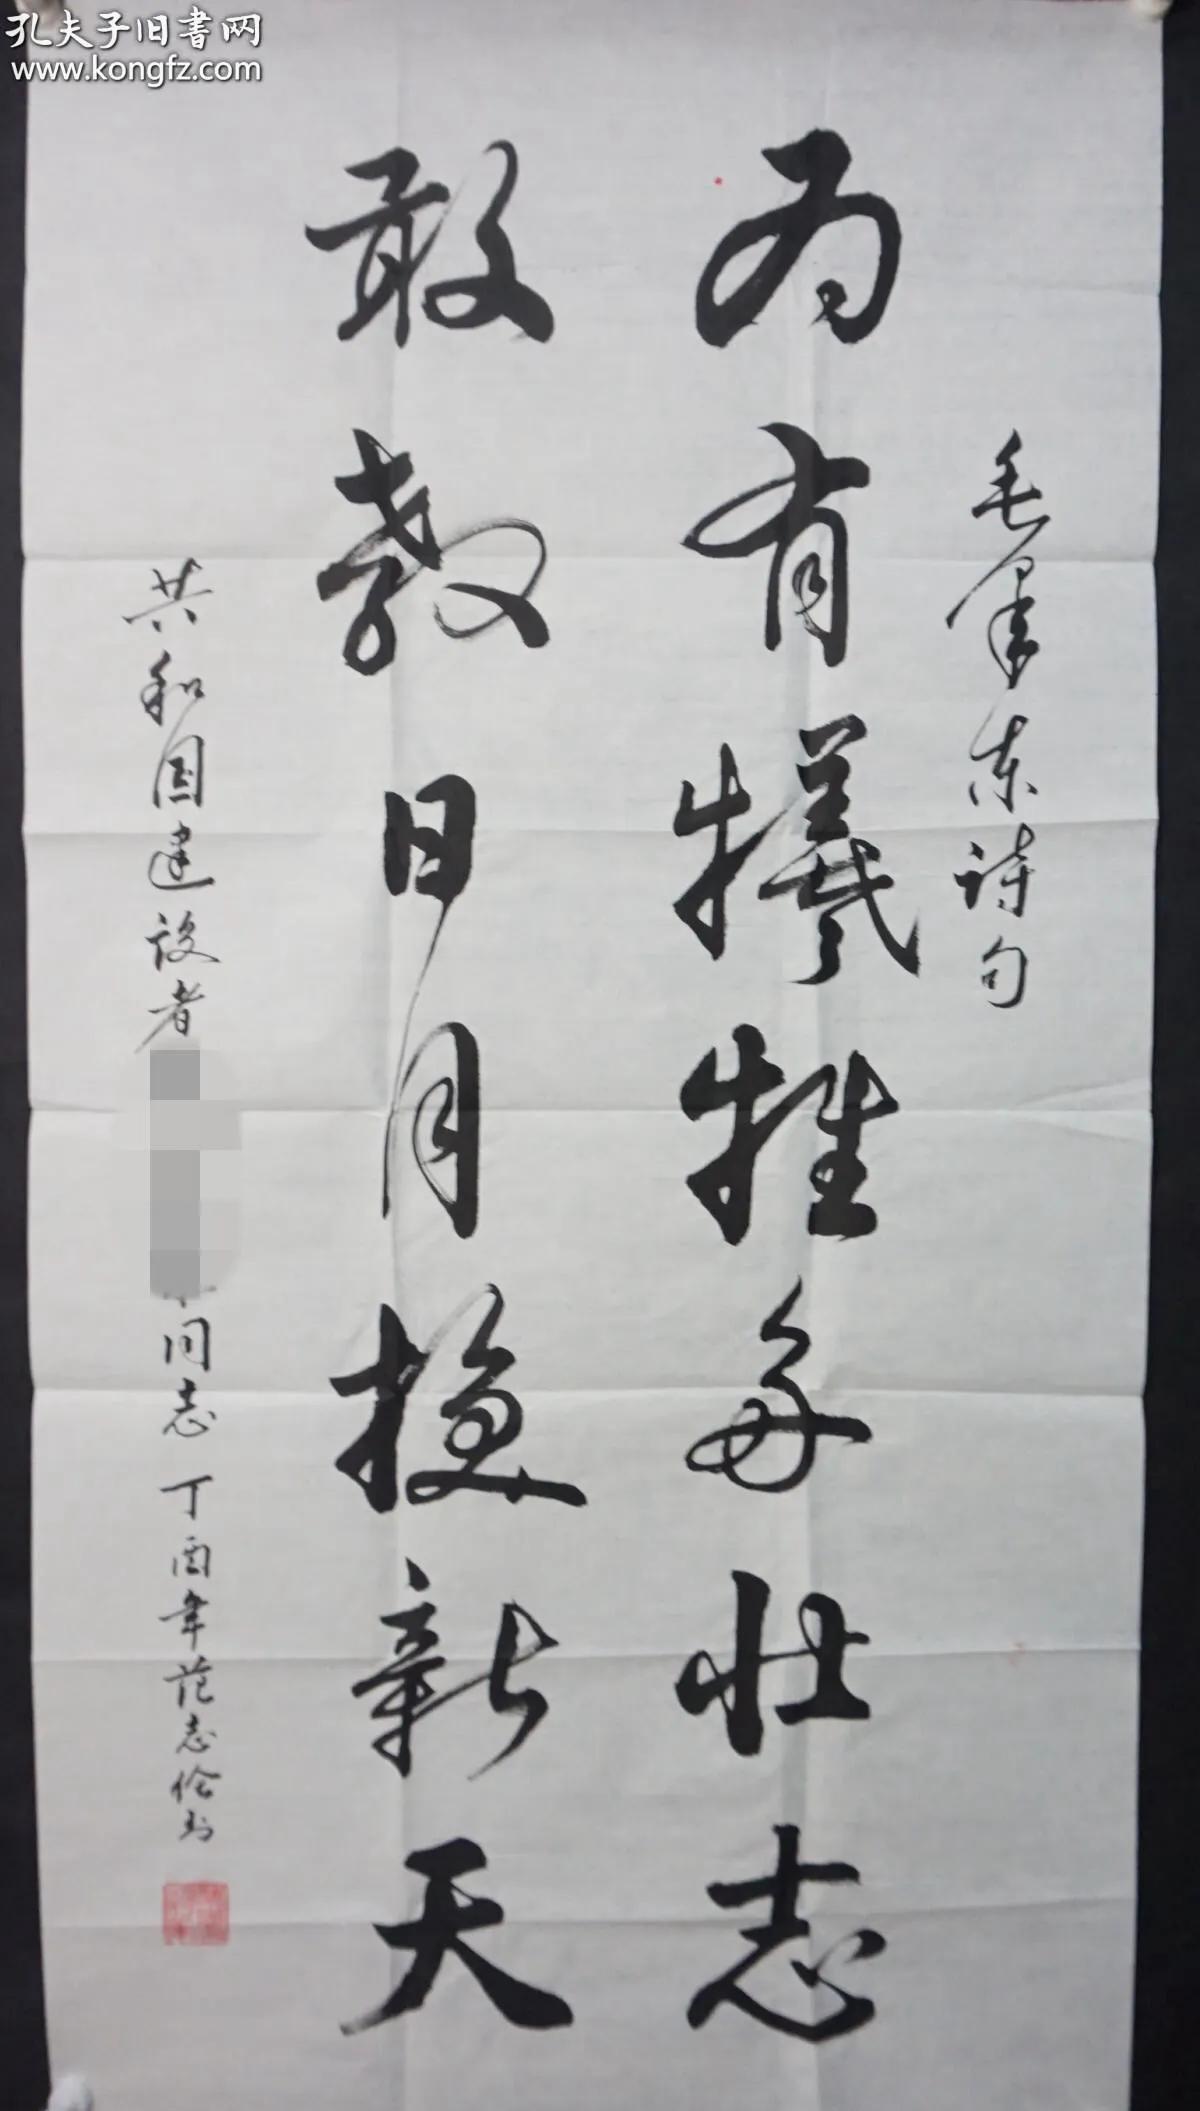 孔夫子旧書网
www.kongfz.com
毛泽东诗句
为有犧牲多壮志
敢教日月换新天
共和国建设者 同志 丁酉年范志伦书